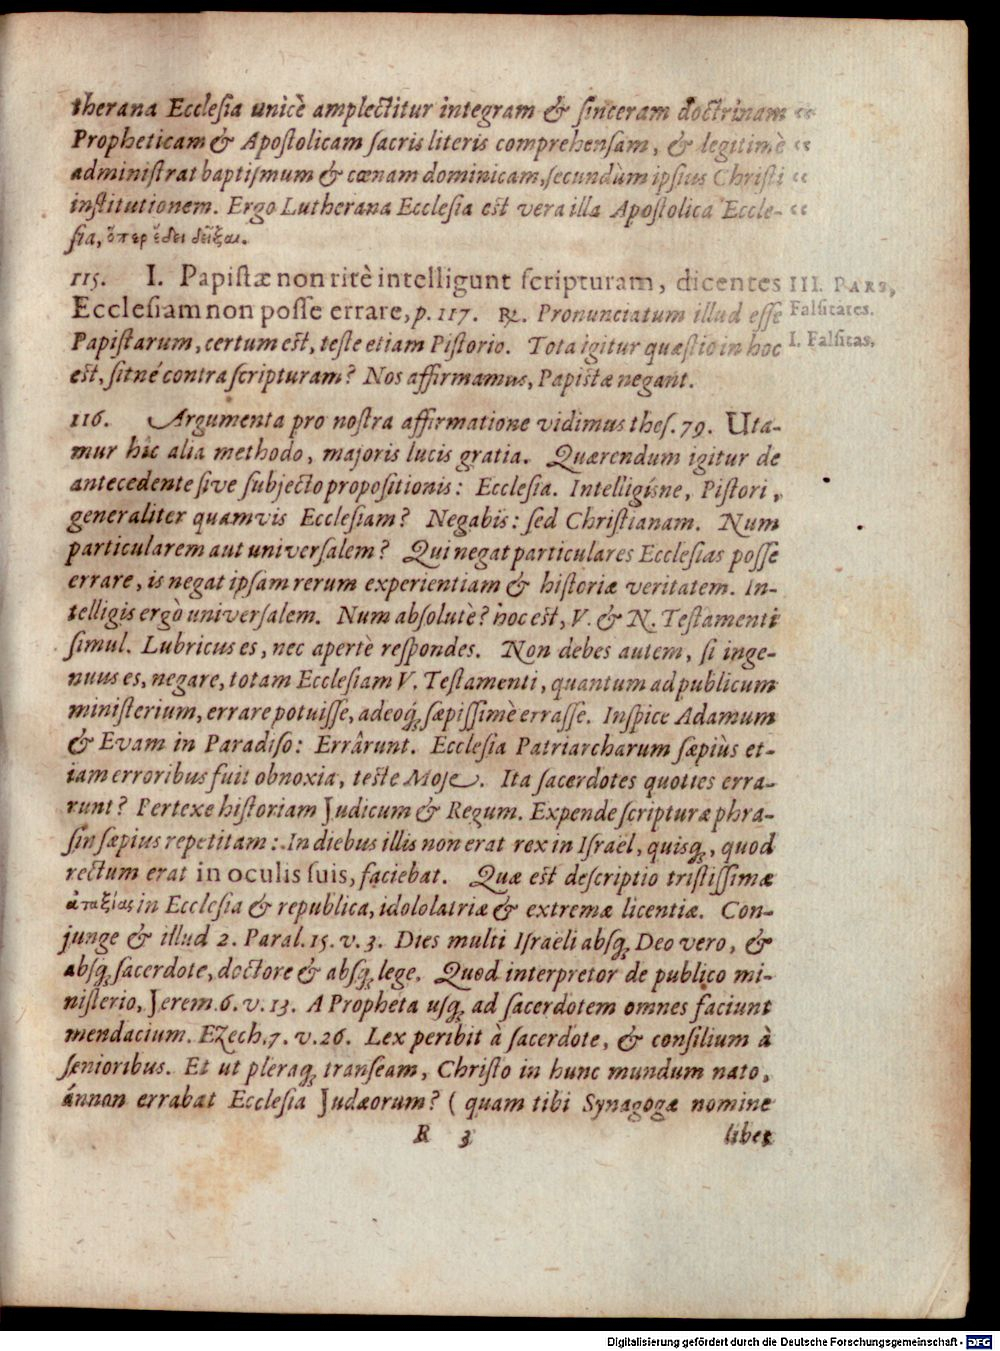 therana Ecclesia unicè amplectitur integram & sinceram doctrinam “
Propheticam & Apostolicam sacris literis comprehensam, & legitimè “
administrat baptismum & cœnam dominicam, secundùm ipsius Christi “
institutionem. Ergo Lutherana Ecclesia est vera illa Apostolica Eccle- “
sia, ὅπερ ἔδει δεῖξαι.
115. I. Papistæ non ritè intelligunt scripturam, dicentes III. PARS,
Ecclesiam non posse errare, p. 117. ℞. Pronunciatum illud esse Falsitates.
Papistarum, certum est, teste etiam Pistorio. Tota igitur quæstio in hoc I. Falsitas.
est, sitné contra scripturam? Nos affirmamus, Papistæ negant.
116. Argumenta pro nostra affirmatione vidimus thes. 79. Uta-
mur hîc alia methodo, majoris lucis gratia. Quærendum igitur de
antecedente sive subjecto propositionis: Ecclesia. Intelligisne, Pistori,
generaliter quamvis Ecclesiam? Negabis: sed Christianam. Num
particularem aut universalem? Qui negat particulares Ecclesias posse
errare, is negat ipsam rerum experientiam & historiæ veritatem. In-
telligis ergò universalem. Num absolutè? hoc est, V. & N. Testamenti
simul. Lubricus es, nec apertè respondes. Non debes autem, si inge-
nuus es, negare, totam Ecclesiam V. Testamenti, quantum ad publicum
ministerium, errare potuisse, adeoq́; sæpissimè errasse. Inspice Adamum
& Evam in Paradiso: Errârunt. Ecclesia Patriarcharum sæpiùs et-
iam erroribus fuit obnoxia, teste Mose. Ita sacerdotes quoties erra-
runt? Pertexe historiam Judicum & Regum. Expende scripturæ phra-
sin sæpius repetitam: In diebus illis non erat rex in Israël, quisq́;, quod
rectum erat in oculis suis, faciebat. Quæ est descriptio tristissimæ
ἀταξίας in Ecclesia & republica, idololatriæ & extremæ licentiæ. Con-
junge & illud 2. Paral. 15. v. 3. Dies multi Israëli absq́; Deo vero, &
absq́; sacerdote, doctore & absq́; lege. Quod interpretor de publico mi-
nisterio, Jerem. 6. v. 13. A Propheta usq́; ad sacerdotem omnes faciunt
mendacium. Ezech. 7. v. 26. Lex peribit à sacerdote, & consilium à
senioribus. Et ut pleraq́; transeam, Christo in hunc mundum nato,
ánnon errabat Ecclesia Judæorum? ( quam tibi Synagogæ nomine
R 3 libet
Digitalisierung gefördert durch die Deutsche Forschungsgemeinschaft - DFG